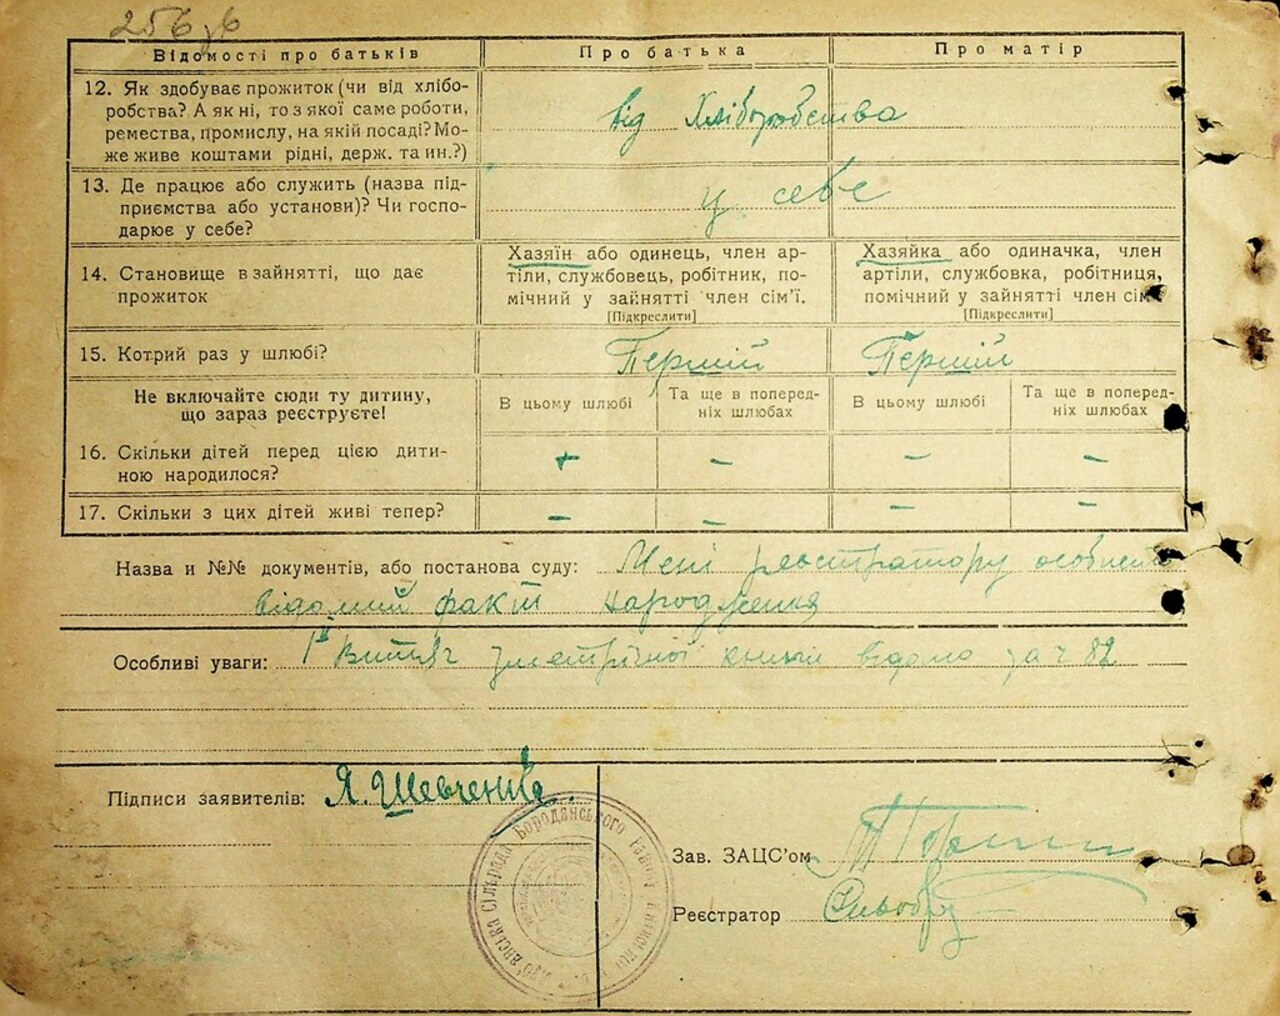 256 зв
Відомості про батьків
Про батька
Про матір
12. Як здобуває прожиток (чи від хлібо-
робства? А як ні, то з якої саме роботи,
ремества, промислу, на якій посаді? Мо-
же живе коштами рідні, держ. та ин.?)
від Хліборобства
13. Де працює або служить (назва під-
приємства або установи)? Чи госпо-
дарює у себе?
у себе
14. Становище в зайнятті, що дає
прожиток
Хазяїн або одинець, член ар-
тіли, службовець, робітник, по-
мічний у зайнятті член сім'ї.
[Підкреслити]
Хазяйка або одиначка, член
артіли, службовка, робітниця,
помічний у зайнятті член сім'ї
[Підкреслити]
15. Котрий раз у шлюбі?
Перший
Перший
Не включайте сюди ту дитину,
що зараз реєструєте!
В цьому шлюбі
Та ще в поперед-
ніх шлюбах
В цьому шлюбі
Та ще в поперед-
ніх шлюбах
16. Скільки дітей перед цією дити-
ною народилося?
+ – – –
17. Скільки з цих дітей живі тепер?
– – – –
Назва и №№ документів, або постанова суду: Мені реєстратору особисто
відомий факт народження
Особливі уваги: Витяг книги за ч 82
Підписи заявителів: Я. Шевченко.
Сільрада Бородянського району
Зав. ЗАЦС'ом
Реєстратор